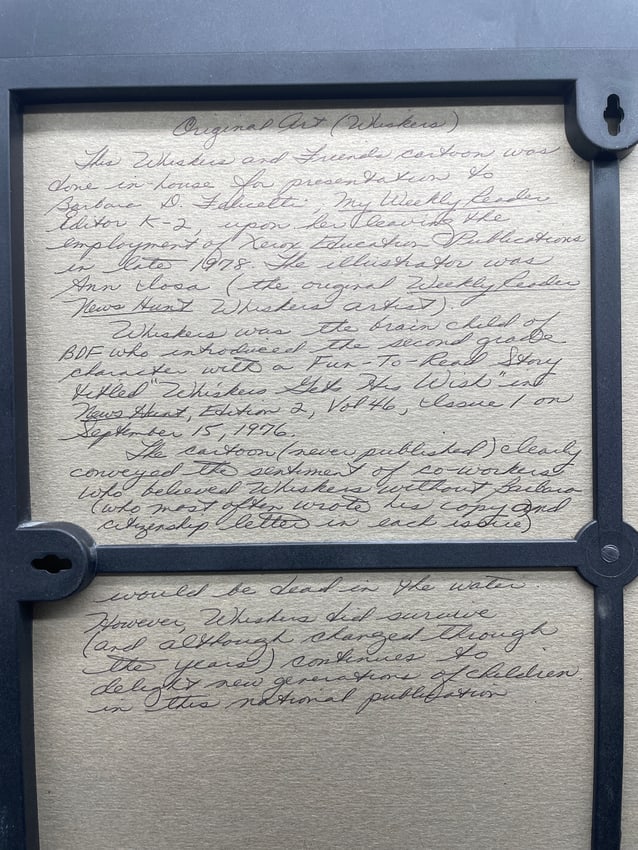 Original Art (Whiskers)
This Whiskers and Friends cartoon was
done in-house for presentation to
Barbara D. My Weekly Reader
Editor K-2, upon her leaving the
employment of Xerox Education Publications
in late 1978. The illustrator was
Ann Iosa (the original Weekly Reader
News Hunt Whiskers artist).
Whiskers was the brain child of
BDF who introduced the second grade
character with a Fun-To-Read Story
titled "Whiskers Gets His Wish" in
News Hunt, Edition 2, Vol 46, Issue 1 on
September 15, 1976.
The cartoon (never published) clearly
conveyed the sentiment of co-workers
who believed Whiskers without Barbara
(who most often wrote his copy and
citizenship letter in each issue)
would be dead in the water
However, Whiskers did survive
(and although changed through
the years) continues to
delight new generations of children
in this national publication